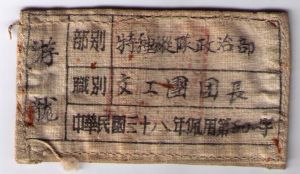 部別 特種縱隊政治部
職別 文工團团長
中華民國三十八年佩用第 字
號